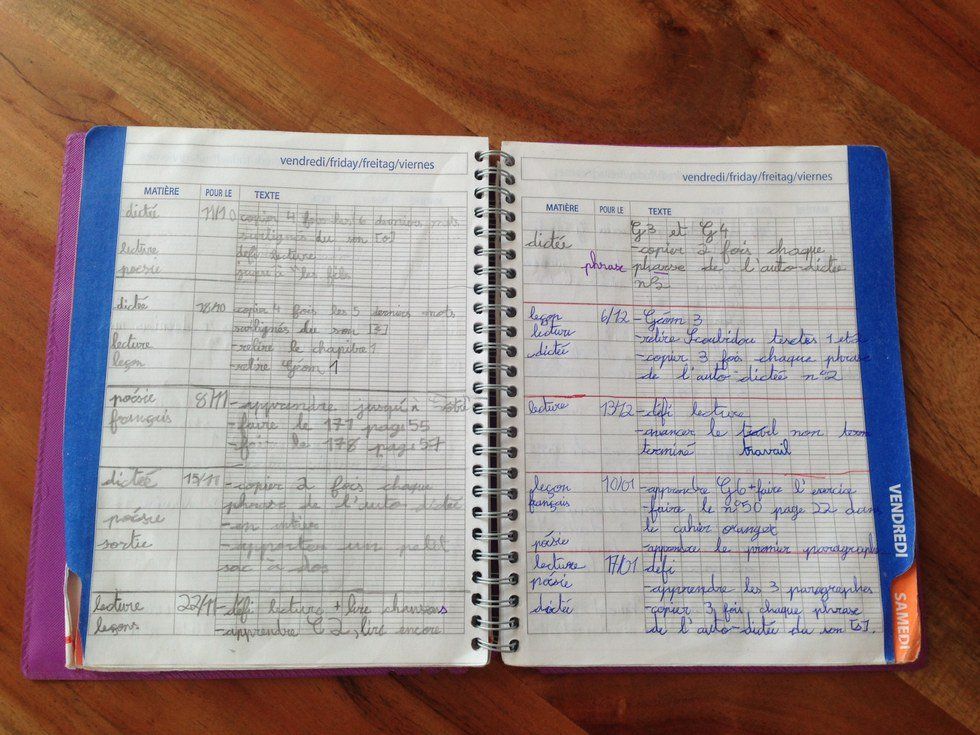 vendredi/friday/freitag/viernes
MATIÈRE POUR LE TEXTE
dictée 11/10 -copier 4 fois les 6 derniers mots
surlignés du son [o]
lecture défi lecture
poésie
dictée 18/10 -copier 4 fois les 5 derniers mots
surlignés du son
lecture -relire le chapitre 1
leçon -relire Géom 1
poésie 8/11 -apprendre jusqu'à
français -faire le 171 page 55
le 178 page 57
dictée 15/11 -copier 2 fois chaque
phrase de l'auto-dictée
poésie -en entier
sortie -apporter un petit
sac à dos
lecture 22/11 -défi lecture + lire chansons
leçons -apprendre C2, lire encore
vendredi/friday/freitag/viernes
MATIÈRE POUR LE TEXTE
G3 et G4
dictée -copier 2 fois chaque
phrase pharse de l'auto-dictée
leçon 6/12 -Géom 3
lecture -relire textes 1 et 2
dictée -copier 3 fois chaque phrase
de l'auto-dictée n°2
lecture 13/12 -défi lecture
-avancer le non term
terminé travail
leçon 10/01 -apprendre G6+faire l'exercice
français -faire le n°50 page 22 dans
le cahier
poésie -apprendre le premier paragraphe
lecture 17/01 défi
poésie -apprendre les 3 paragraphes
dictée -copier 3 fois chaque phrase
de l'auto-dictée du son [s].
VENDREDI
SAMEDI